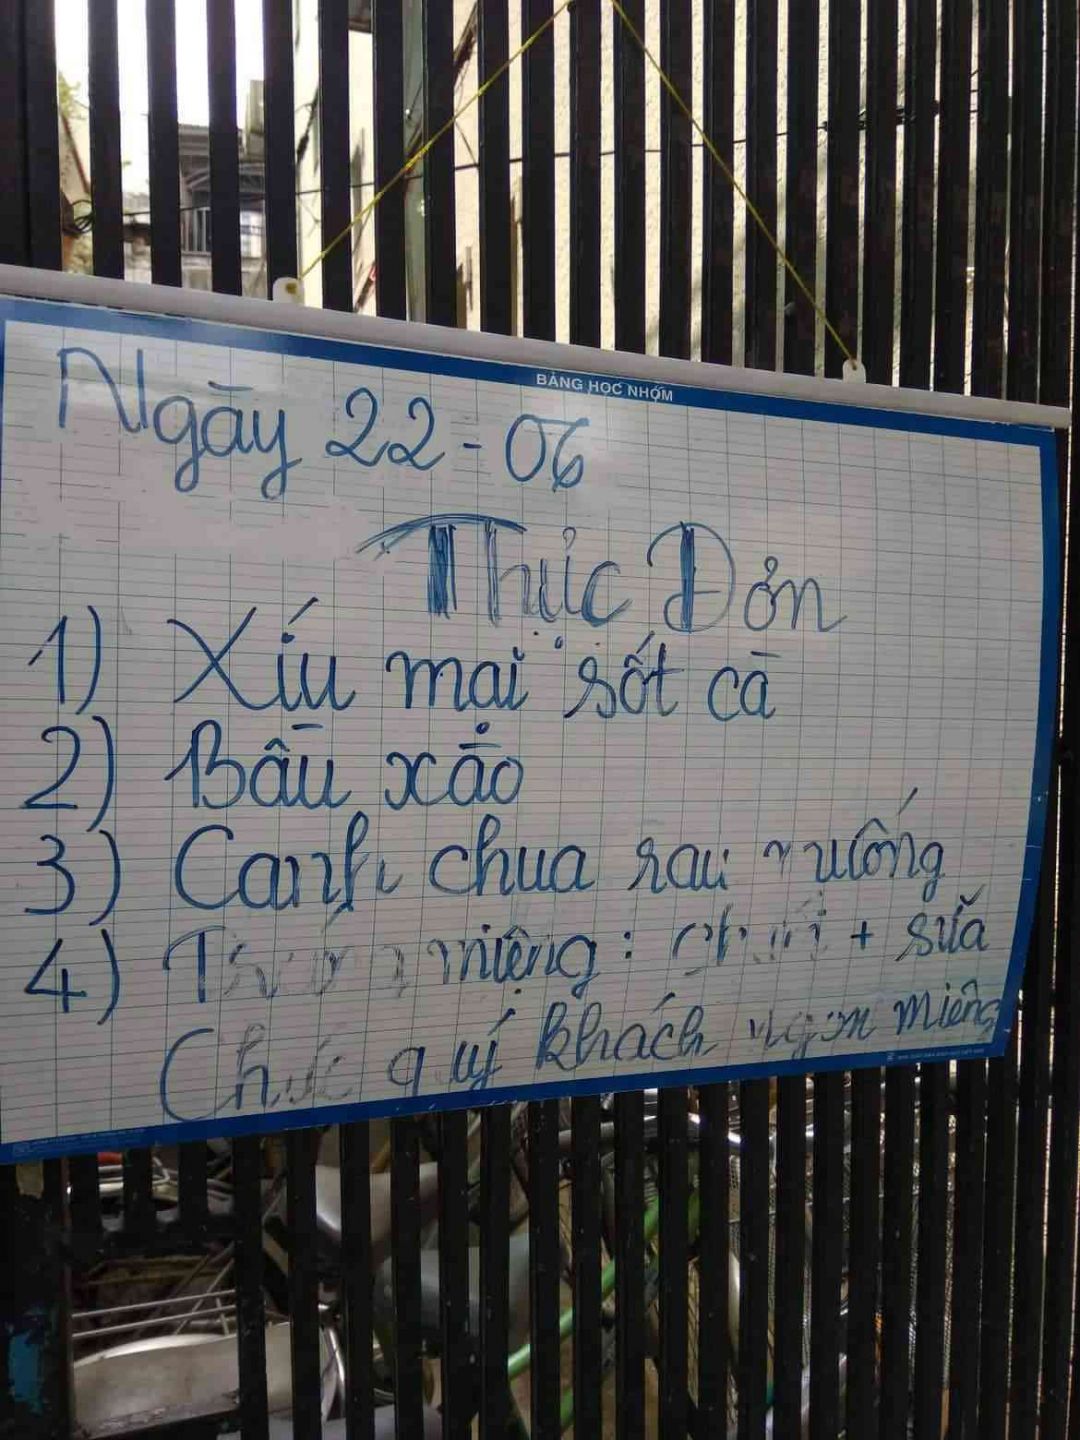 BẢNG HỌC NHÓM
Ngày 22-06
Thực Đơn
1) Xíu mại sốt cà
2) Bầu xào
3) Canh chua rau muống
4) Tráng miệng: chuối + sữa
Chúc quý khách ngon miệng